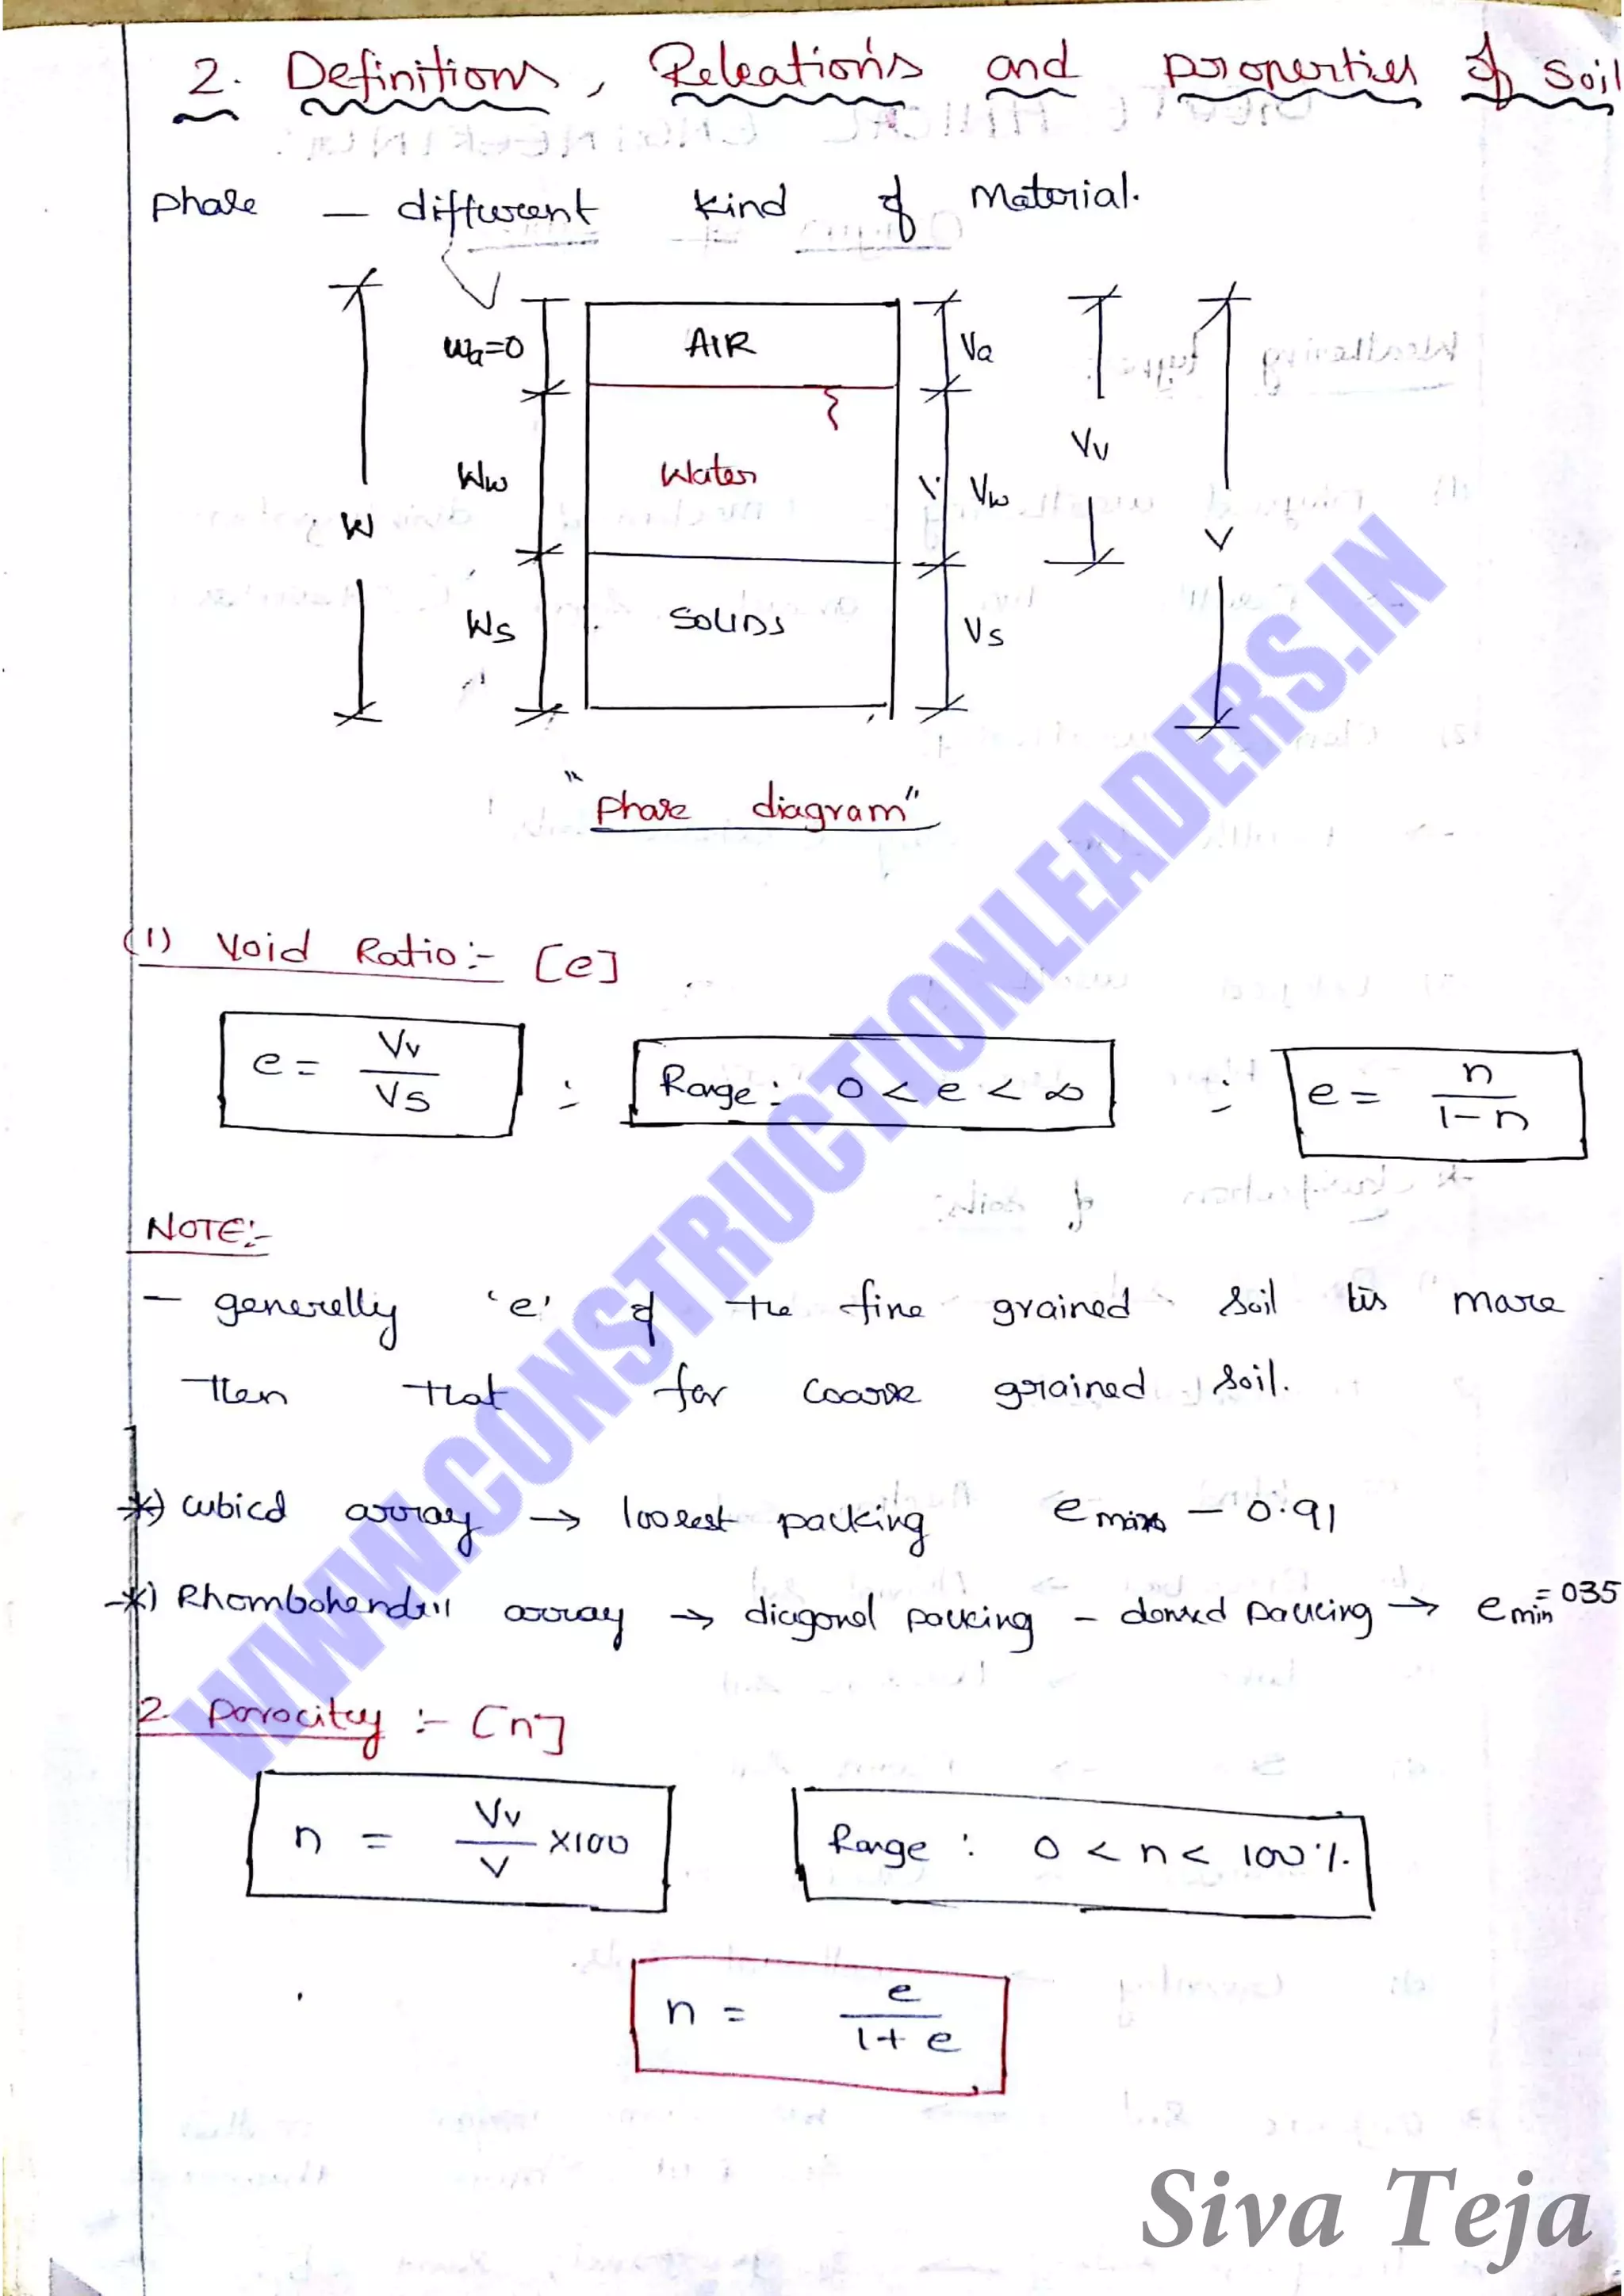 2. Definitions, Releations and properties of Soil
phase — different kind of Material.
Wa=0 AIR Va
Ww Water Vw Vv
W V
Ws SOLIDS Vs
"phase diagram"
(1) Void Ratio:- [e]
e = Vv/Vs ; Range: 0 < e < ∞ ; e = n/1-n
NOTE:-
- generally 'e' of the fine grained soil is more
then that for coarse grained soil.
*) cubical array → loosest packing e max — 0.91
*) Rhombohendril array → diagonal packing - densed packing → e min = 035
2. Porocity :- [n]
n = Vv/V ×100 Range : 0 < n < 100%
n = e/1+e
WWW.CONSTRUCTIONLEADERS.IN
Siva Teja